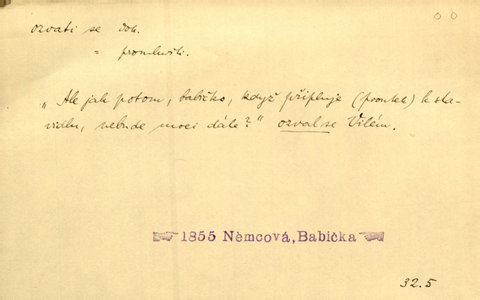 ozvati se dok.
= promluviti.
„Ale jak potom, babičko, když připluje (proutek) k sta-
vidlu, nebude moci dále?" ozval se Vilém.
1855 Němcová, Babička
32.5